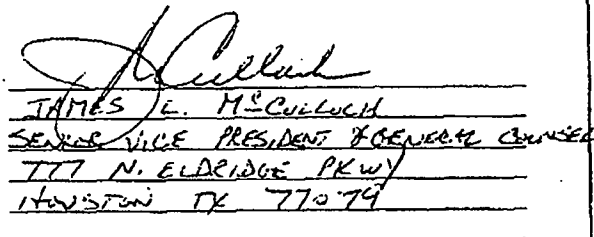 J McCulloch
JAMES L. McCULLOCH
SENIOR VICE PRESIDENT & GENERAL COUNSEL
777 N. ELDRIDGE PKWY
HOUSTON TX 77079